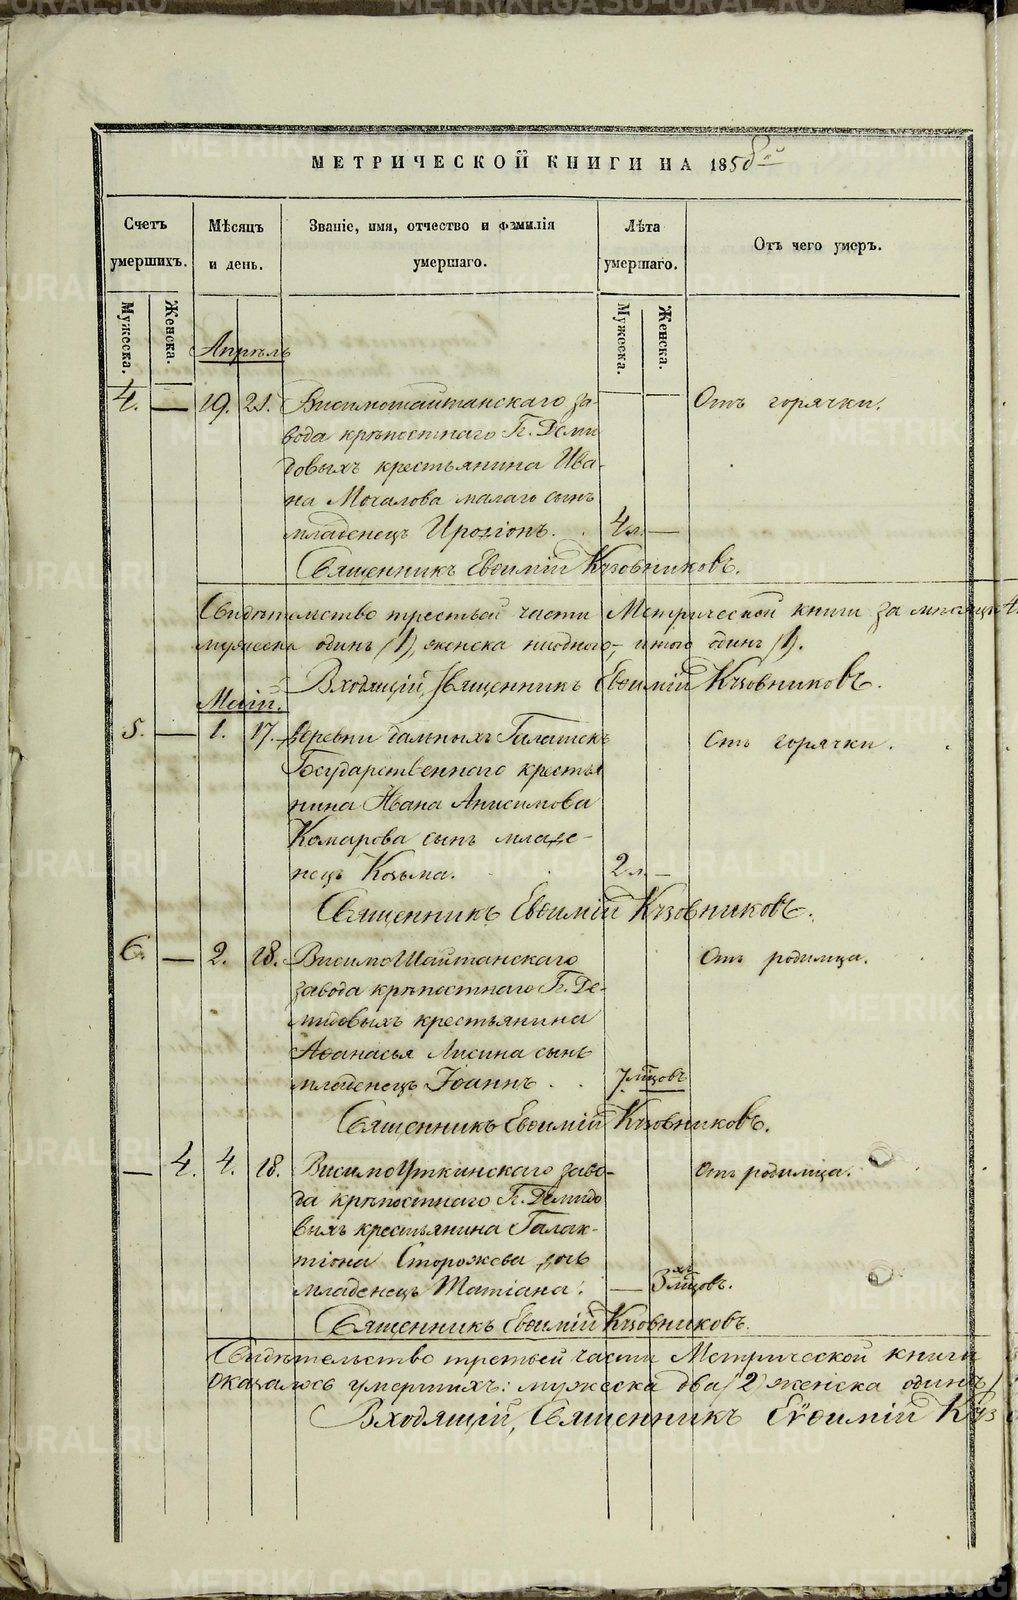 МЕТРИЧЕСКОЙ КНИГИ НА 1858й
Счетъ умершихъ.
Мѣсяцъ и день.
Званіе, имя, отчество и фамилія умершаго.
Лѣта умершаго.
Отъ чего умеръ.
Мужеска.
Женска.
Мужеска.
Женска.
Апрѣль
4. — 19. 21. Висимошайтанскаго за- Отъ горячки.
вода крѣпостнаго Г. Деми
довыхъ крестьянина Ива-
на Мочалова малаго сынъ
младенецъ Иродіонъ. 4 л. —
Священникъ Евѳимій Кузовниковъ.
Свидѣтельство третьей части Метрической книги за
мужеска одинъ (1), женска ниодного, итого одинъ (1).
Входящій, Священникъ Евѳимій Кузовниковъ.
Маій.
5. — 1. 17. деревни дальныхъ Галашекъ Отъ горячки.
Государственнаго крестья
нина Ивана Анисимова
Комарова сынъ младе-
нецъ Козьма. 2 л. —
Священникъ Евѳимій Кузовниковъ.
6. — 2. 18. ВисимоШайтанскаго Отъ родимца.
завода крѣпостнаго Г. Де-
мидовыхъ крестьянина
Аѳанасья Лисина сынъ
младенецъ Іоаннъ. 7 мцовъ
Священникъ Евѳимій Кузовниковъ.
— 4. 4. 18. ВисимоУткинскаго заво- Отъ родимца.
да крѣпостнаго Г. Демидо
выхъ крестьянина Галак-
тіона Сторожева дочь
младенецъ Татіана. — 3хъ мцовъ.
Священникъ Евѳимій Кузовниковъ.
Свидѣтельство третьей части Метрической книги
оказалось умершихъ: мужеска два (2) женска одинъ
Входящій, Священникъ Евѳимій Куз
METRIKI.GASO-URAL.RU